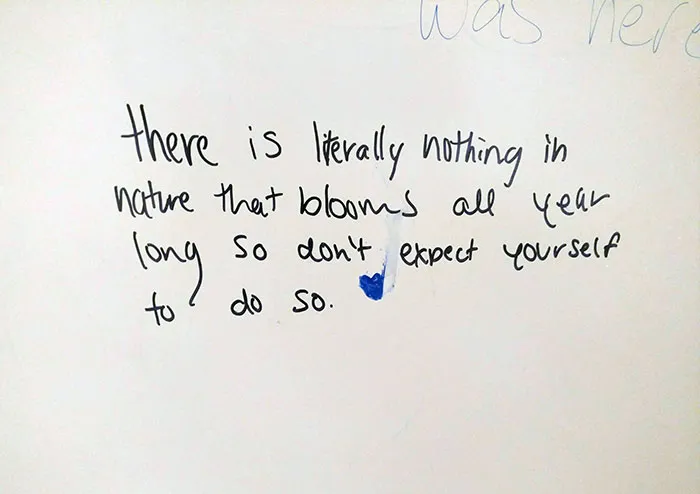 was here
there is literally nothing in
nature that blooms all year
long so don't expect yourself
to do so.